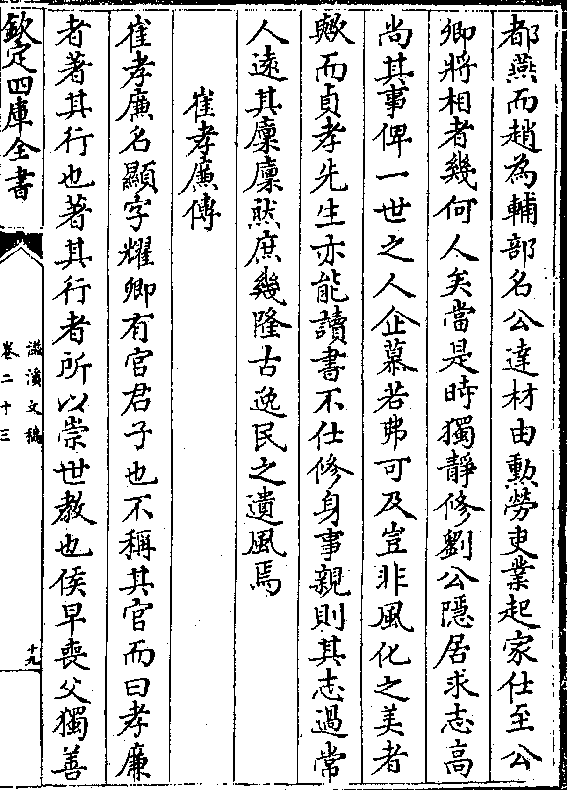 都燕而趙為輔部名公達材由勲勞吏業起家仕至公
卿將相者幾何人矣當是時獨靜修劉公隱居求志髙
尚其事俾一世之人企慕若弗可及豈非風化之美者
歟而貞孝先生亦能讀書不仕修身事親則其志過常
人逺其廩廩然庶幾隆古逸民之遺風焉
崔孝廉傳
崔孝廉名顯字耀卿有官君子也不稱其官而曰孝廉
者著其行也著其行者所以崇世教也侯早喪父獨善
欽定四庫全書
滋溪文稿
卷二十三
十九